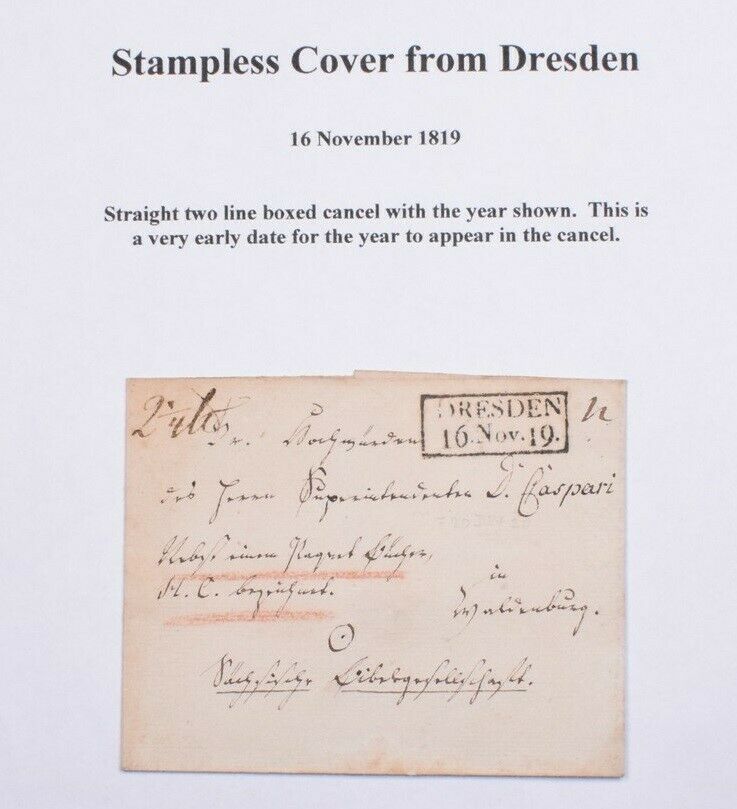 Stampless Cover from Dresden
16 November 1819
Straight two line boxed cancel with the year shown.  This is
a very early date for the year to appear in the cancel.
DRESDEN
16.Nov.19.
Sr. Hochwürden
des Herrn Superintendenten D. Caspari
Nebst einem Paquet Bücher,
H. C. bezeichnet.
in
Waldenburg.
Sächsische Bibelgesellschaft.